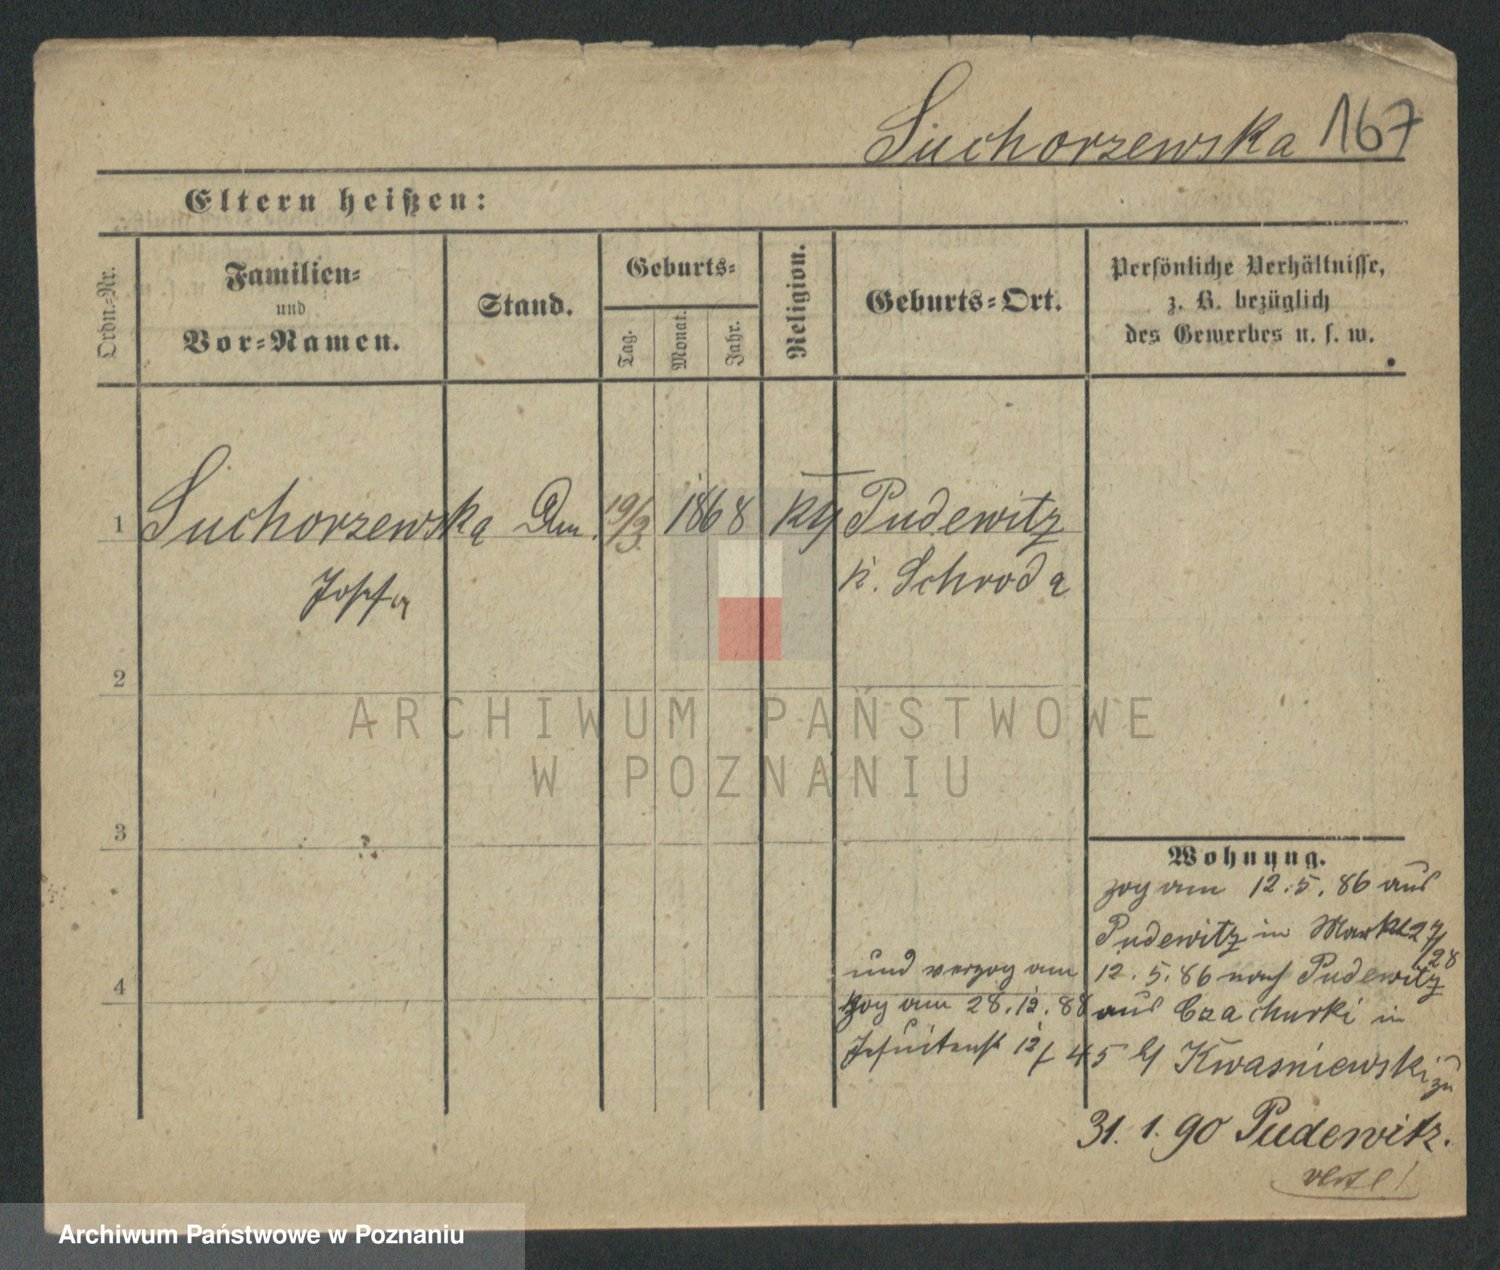 Suchorzewska 167
Eltern heißen:
Ordn.-Nr.
Familien-
und
Vor-Namen.
Stand.
Geburts-
Tag.
Monat.
Jahr.
Religion.
Geburts-Ort.
Persönliche Verhältnisse,
z. B. bezüglich
des Gewerbes u. s. w.
1 Suchorzewska 19/3. 1868 Pudewitz
Josefa
k. Schroda
2
3
4
Wohnung.
zog am 12.5.86 aus
Pudewitz in Markt 27/28
und verzog am 12.5.86 nach Pudewitz
zog am 28.12.88 aus Czachurki in
Jesuitenst 12 Kwasniewski
31.1.90 Pudewitz.
ARCHIWUM PAŃSTWOWE
W POZNANIU
Archiwum Państwowe w Poznaniu